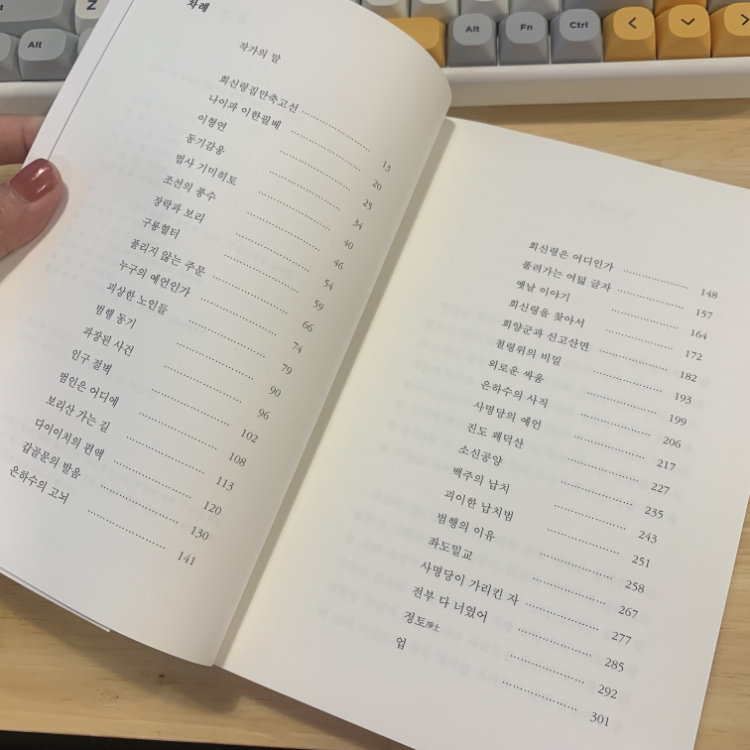 Z
Alt
Alt Fn Ctrl
차례
작가의 말
회신령집만축고선 13
나이파 이한필베 20
이형연 25
동기감응 34
범사 기미히토 40
조선의 풍수 46
장락과 보리 54
구룡혈터 59
풀리지 않는 주문 66
누구의 예언인가 74
괴상한 노인들 79
범행 동기 90
과장된 사건 96
인구 절벽 102
범인은 어디에 108
보리산 가는 길 113
다이이치의 편액 120
갑골문의 발음 130
은하수의 고뇌 141
회신령은 어디인가 148
풀려가는 여덟 글자 157
옛날 이야기 164
회신령을 찾아서 172
회양군과 신고산면 182
철령위의 비밀 193
외로운 싸움 199
은하수의 사직 206
사명당의 예언 217
진도 왜덕산 227
소신공양 235
백주의 납치 243
괴이한 납치범 251
범행의 이유 258
좌도밀교 267
사명당이 가리킨 자 277
전부 다 너였어 285
정토淨土 292
업 301